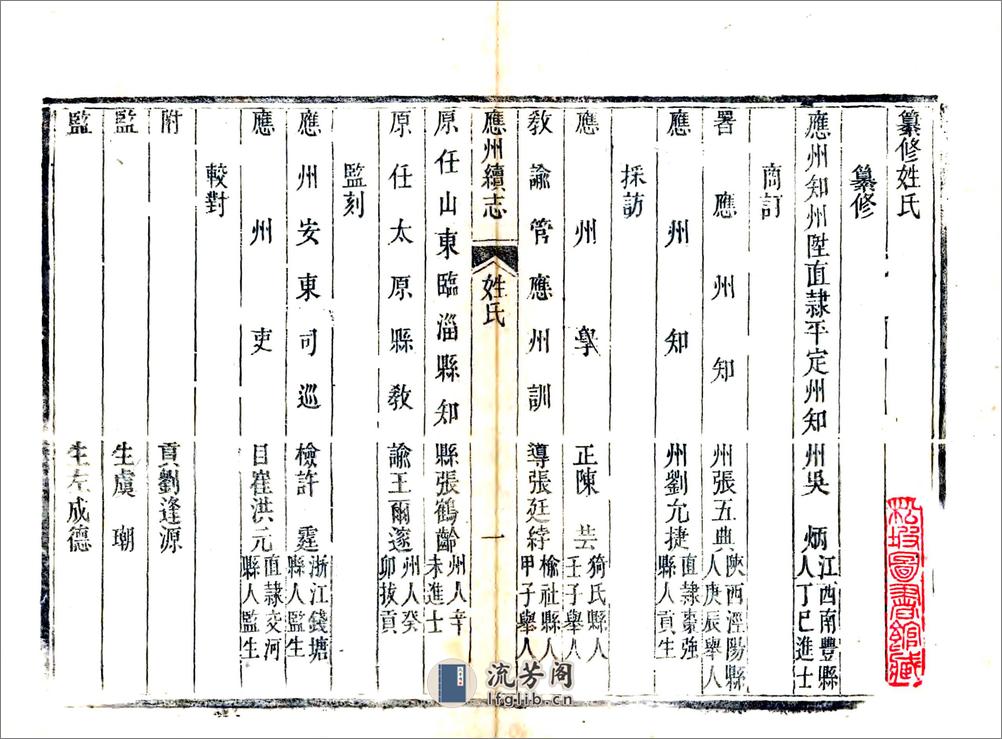 纂修姓氏
纂修
應州知州陞直隸平定州知州吳炳江西南豐縣人丁巳進士
商訂
署應州知州張五典陝西涇陽縣人庚辰舉人
應州知州劉允捷直隸棗強縣人貢生
採訪
應州學正陳芸猗氏縣人壬子舉人
教諭管應州訓導張廷綍榆社縣人甲子舉人
應州續志 姓氏 一
原任山東臨淄縣知縣張鶴齡州人辛未進士
原任太原縣教諭王爾邃州人癸卯拔貢
監刻
應州安東司巡檢許霆浙江錢塘縣人監生
應州吏目崔洪元直隸交河縣人監生
較對
附貢劉逢源
監生虞瑚
監生左成德
松坡圖書館藏
流芳阁
lfglib.cn